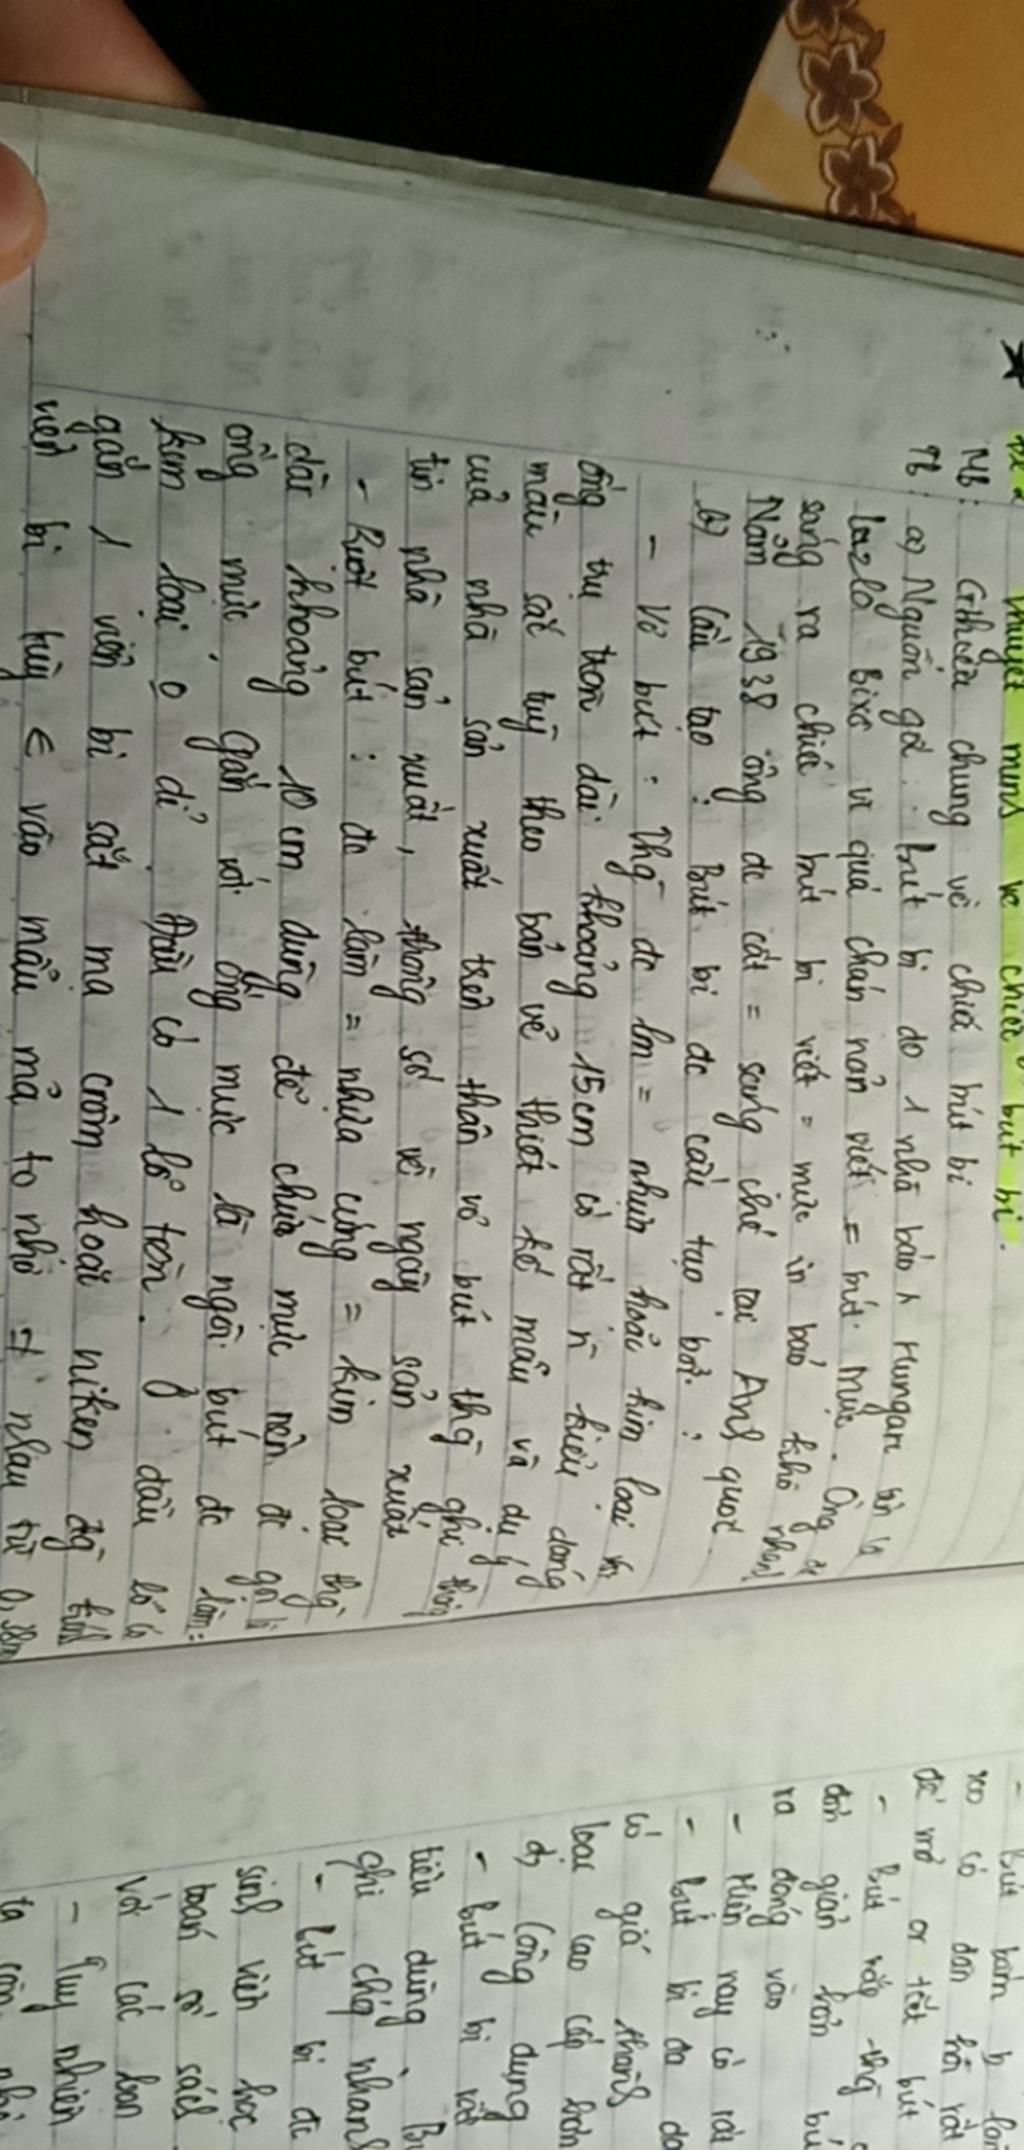 thuyết minh về chiếc bút bi.
MB: Gthiệu chung về chiếc bút bi
TB: a) Nguồn gốc: bút bi do 1 nhà báo Hungari tên là
Lazlo Bixo vì quá chán nản viết = bút mực. Ông
sáng ra chiếc bút bi viết = mực in báo khô nhanh
Năm 1938 ông đc cấp = sáng chế tại Anh quốc.
b) Cấu tạo: Bút bi đc cấu tạo bởi:
- Vỏ bút: Thg đc lm = nhựa hoặc kim loại
ống trụ tròn dài khoảng 15cm có rất n kiểu dáng
màu sắc tuỳ theo bản vẽ thiết kế mẫu và dụ ý
của nhà sản xuất trên thân vỏ bút thg ghi thông
tin nhà sản xuất, thông số về ngày sản xuất
- Ruột bút: đc làm = nhựa cứng = kim loại thg
dài khoảng 10 cm dùng để chứa mực nên đc gọi là
ống mực. Gắn với ống mực là ngòi bút đc làm =
kim loại o dỉ. Đầu có 1 lỗ tròn. Ở đầu lỗ có
gắn 1 viên bi sắt mạ crôm hoặc niken, đg kính
viên bi tuỳ ∈ vào mẫu mã to nhỏ ≠ nhau từ 0,38m
- Bút bấm
xo có đàn hồi rất
để mở or tắt bút
- Bút nắp thg
đơn giản hơn
ra đóng vào
- Hiện nay có rất
- bút bi đa
có giá thành
loại cao cấp hơn
d) Công dụng
- bút bi rất
tiêu dùng.
ghi chép nhanh
- bút bi đc
sinh viên học
toán sổ sách
với các
- Tuy nhiên
ta cần